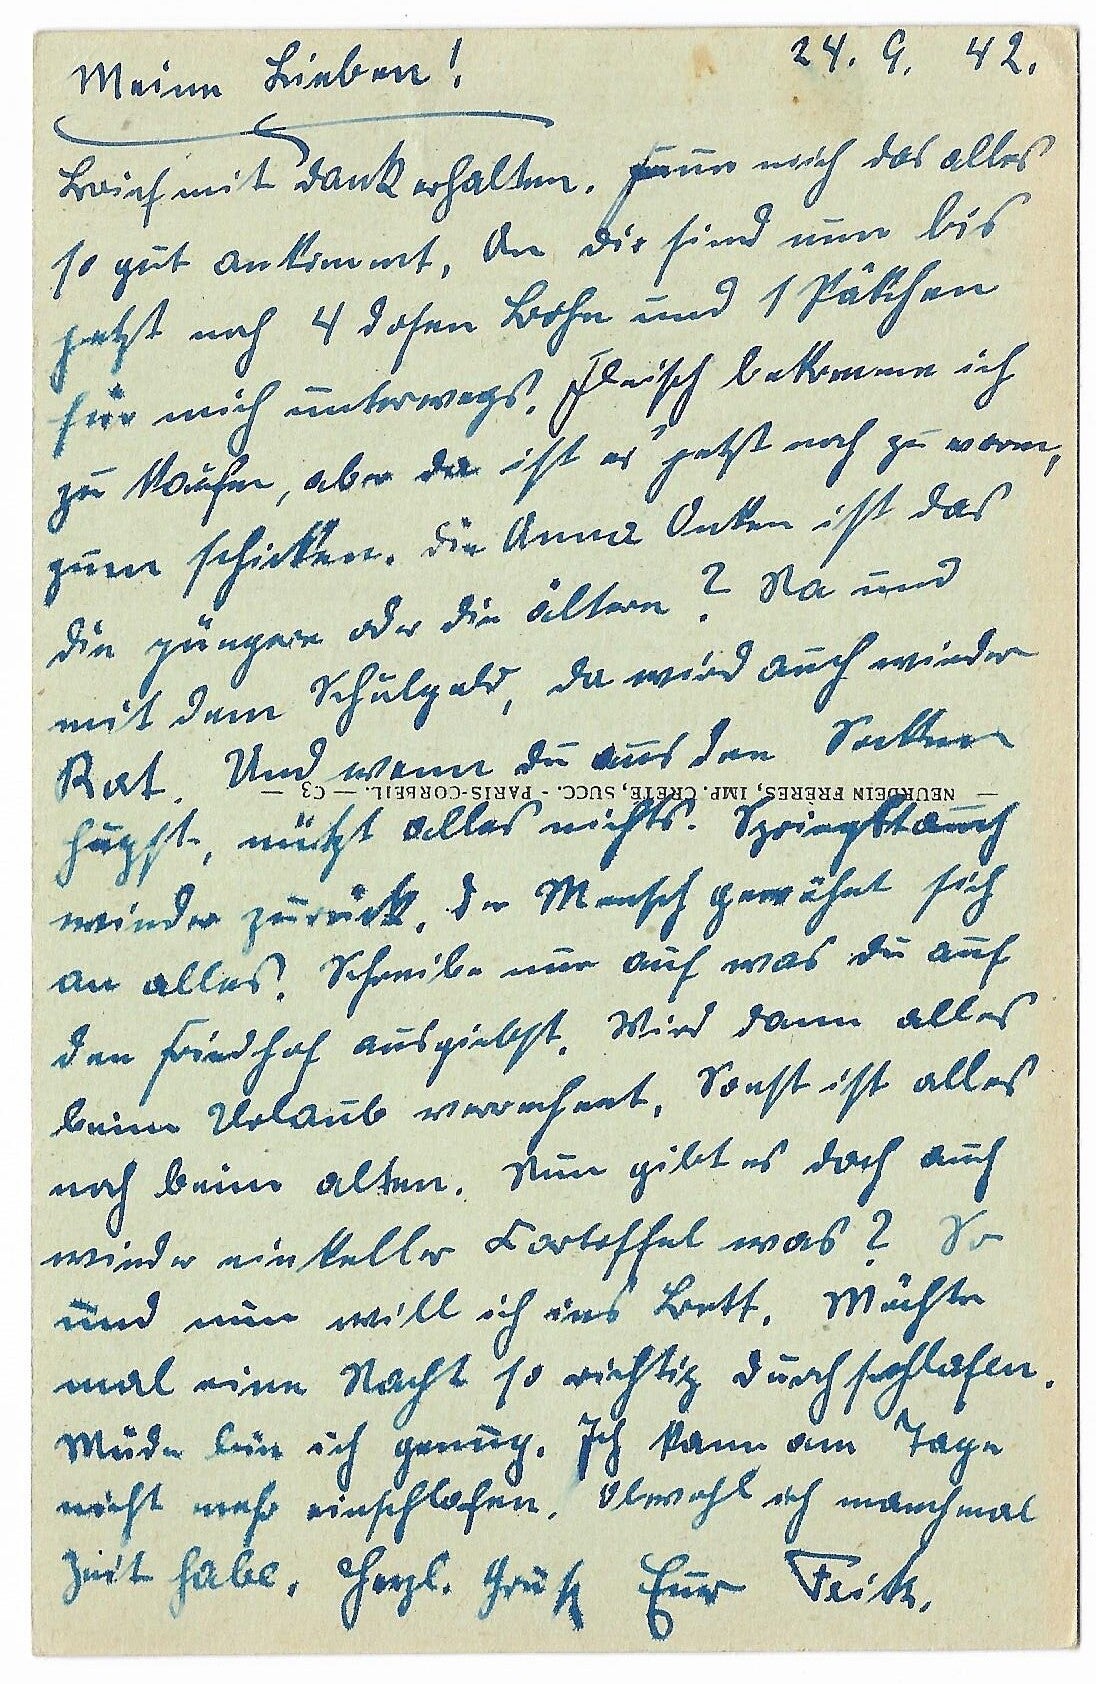 Meine Lieben! 24. 9. 42.
Brief mit Dank erhalten. Freue mich das alles
so gut ankommt. An die sind nun bis
jetzt noch 4 Dosen Bohn und 1 Päkchen
für mich unterwegs. Fleisch bekomme ich
zu kaufen, aber da ist es jetzt noch zu warm,
zum schicken. Die Anna Onken ist das
die jüngere oder die ältere? Na und
mit dem Schulgeld, da wird auch wieder
Rat. Und wenn du aus den Socken
— NEURDEIN FRÈRES, IMP. CRÉTÉ, SUCC. - PARIS-CORBEIL. — C3 —
hupfst, nützt alles nichts. Springst auch
wieder zurück. Der Mensch gewöhnt sich
an alles. Schreibe nur auf was du auf
den Friedhof ausgiebst. Wird dann alles
beim Urlaub verrechent. Sonst ist alles
noch beim alten. Nun gibt es doch auch
wieder einkeller Kartoffel was? So
und nun will ich ins Bett. Möchte
mal eine Nacht so richtig durchschlafen.
Müde bin ich genug. Ich kann am Tage
nicht mehr einschlafen. Obwohl ich manchmal
Zeit habe. Herzl. Gruß Euer